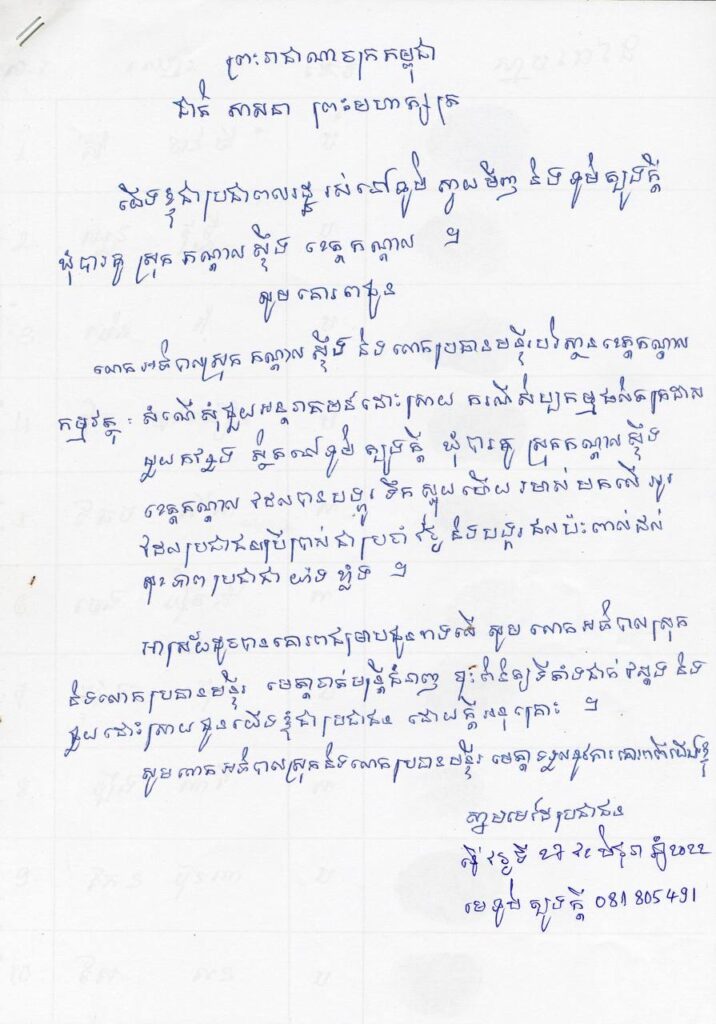 ព្រះរាជាណាចក្រកម្ពុជា
ជាតិ សាសនា ព្រះមហាក្សត្រ
យើងខ្ញុំជាប្រជាពលរដ្ឋ រស់នៅភូមិ ស្វាយមីញ និង ភូមិត្បូងក្ដី
ឃុំបារគូ ស្រុក កណ្ដាលស្ទឹង ខេត្តកណ្ដាល ។
សូមគោរពជូន
លោកអភិបាលស្រុក កណ្ដាលស្ទឹង និងលោកប្រធានមន្ទីរបរិស្ថានខេត្តកណ្ដាល
កម្មវត្ថុ : សំណើសុំជួយអន្តរាគមន៍ដោះស្រាយ ករណីសិប្បកម្មផលិតក្រដាស
មួយកន្លែង ស្ថិតនៅភូមិ ត្បូងក្ដី ឃុំបារគូ ស្រុកកណ្ដាលស្ទឹង
ខេត្តកណ្ដាល ដែលបានបង្ហូរ ទឹកស្អុយហើយ រមាស់ មកលើ អូរ
ដែលប្រជាជនប្រើប្រាស់ជាប្រចាំ ថ្ងៃ និងបង្កផលប៉ះពាល់ដល់
សុខភាព ប្រជាជា យ៉ាង ខ្លាំង ។
អាស្រ័យដូចបានគោរពជម្រាបជូនខាងលើ សូម លោកអភិបាលស្រុក
និងលោកប្រធានមន្ទីរ មេត្តាចាត់មន្ត្រីជំនាញ ចុះពិនិត្យទីតាំងជាក់ស្ដែង និង
ជួយដោះស្រាយ ជូនយើងខ្ញុំជាប្រជាជន ដោយក្ដីអនុគ្រោះ ។
សូមលោកអភិបាលស្រុកនិងលោកប្រធានមន្ទីរ មេត្តាទទួលនូវការគោរពពីយើងខ្ញុំ
ស្នាមមេដៃប្រជាជន
ថ្ងៃទី ២៦ ខែ មិថុនា ឆ្នាំ២០២២
មេភូមិ ត្បូងក្ដី 081 805491